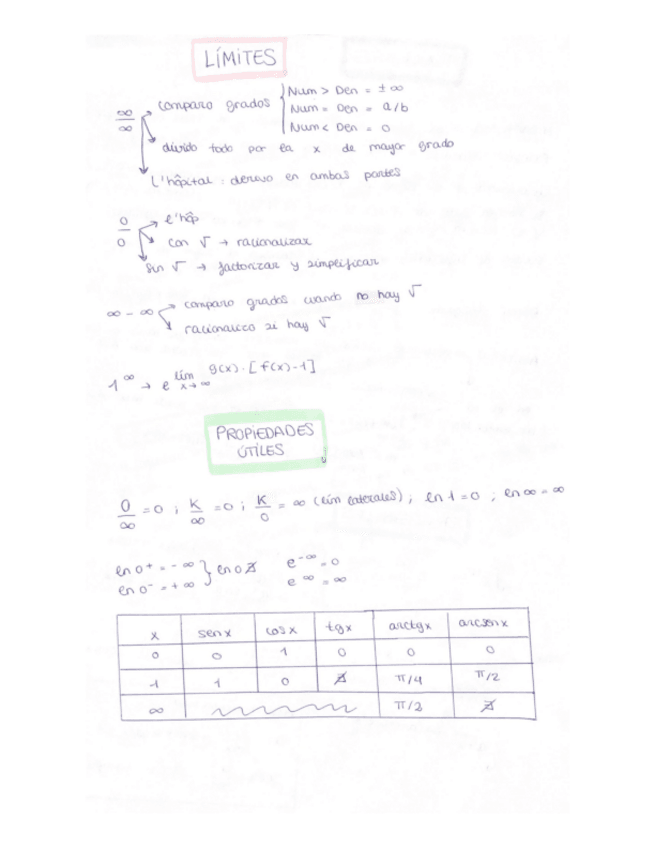 LÍMITES
∞/∞ → comparo grados { Num > Den = ±∞
Num = Den = a/b
Num < Den = 0
→ divido todo por la x de mayor grado
→ L'hôpital: derivo en ambas partes
0/0 → l'hôp
→ con √ → racionalizar
→ sin √ → factorizar y simplificar
∞ - ∞ → comparo grados cuando no hay √
→ racionalizo si hay √
1^∞ → e^lím x→∞ g(x)·[f(x)-1]
PROPIEDADES
ÚTILES
0/∞ = 0 ; K/∞ = 0 ; K/0 = ∞ (lím laterales) ; ln 1 = 0 ; ln ∞ = ∞
ln 0⁺ = -∞ } ln 0 ∄ e^-∞ = 0
ln 0⁻ = +∞ e^∞ = ∞
x sen x cos x tg x arctg x arcsen x
0 0 1 0 0 0
1 1 0 ∄ π/4 π/2
∞ π/2 ∄